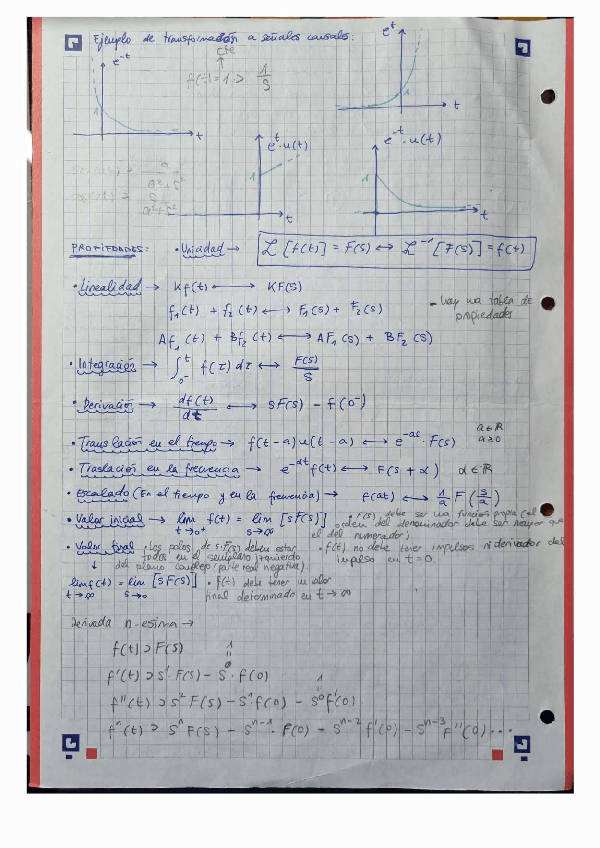 Ejemplo de transformación a señales causales:
cte
f(t)=1 ⊃ 1/S
e^-t
1
t
e^t
1
t
e^t·u(t)
1
t
e^-t·u(t)
1
t
PROPIEDADES: · Unicidad → ℒ[f(t)] = F(S) ↔ ℒ^-1[F(S)] = f(t)
· Linealidad → Kf(t) ⟷ KF(S)
f₁(t) + f₂(t) ⟷ F₁(S) + F₂(S)
- Hay una tabla de
propiedades
Af₁(t) + Bf₂(t) ⟷ AF₁(S) + BF₂(S)
· Integración → ∫_0⁻^t f(τ)dτ ⟷ F(S)/S
· Derivación → df(t)/dt ⟷ SF(S) - f(0⁻)
· Translación en el tiempo → f(t-a)u(t-a) ⟷ e^-as · F(S) a∈ℝ
a≥0
· Traslación en la frecuencia → e^-αt f(t) ⟷ F(S+α) α∈ℝ
· Escalado (En el tiempo y en la frecuencia) → f(at) ⟷ 1/a F(s/a)
· Valor inicial → lim t→0⁺ f(t) = lim s→∞ [SF(S)] · F(S) debe ser una función propia (el
orden del denominador debe ser mayor que
el del numerador).
· Valor final · Los polos de S·F(S) deben estar
todos en el semiplano izquierdo
del plano complejo (parte real negativa).
· f(t) no debe tener impulsos ni derivadas del
impulso en t=0
↓
lim t→∞ f(t) = lim s→0 [SF(S)] · f(t) debe tener un valor
final determinado en t→∞
Derivada n-esima →
f(t) ⊃ F(S)
1
f'(t) ⊃ S^1·F(S) - S^0·f(0)
1
f''(t) ⊃ S^2 F(S) - S^1 f(0) - S^0 f'(0)
f^n(t) ⊃ S^n F(S) - S^n-1 · F(0) - S^n-2 f'(0) - S^n-3 F''(0) ...